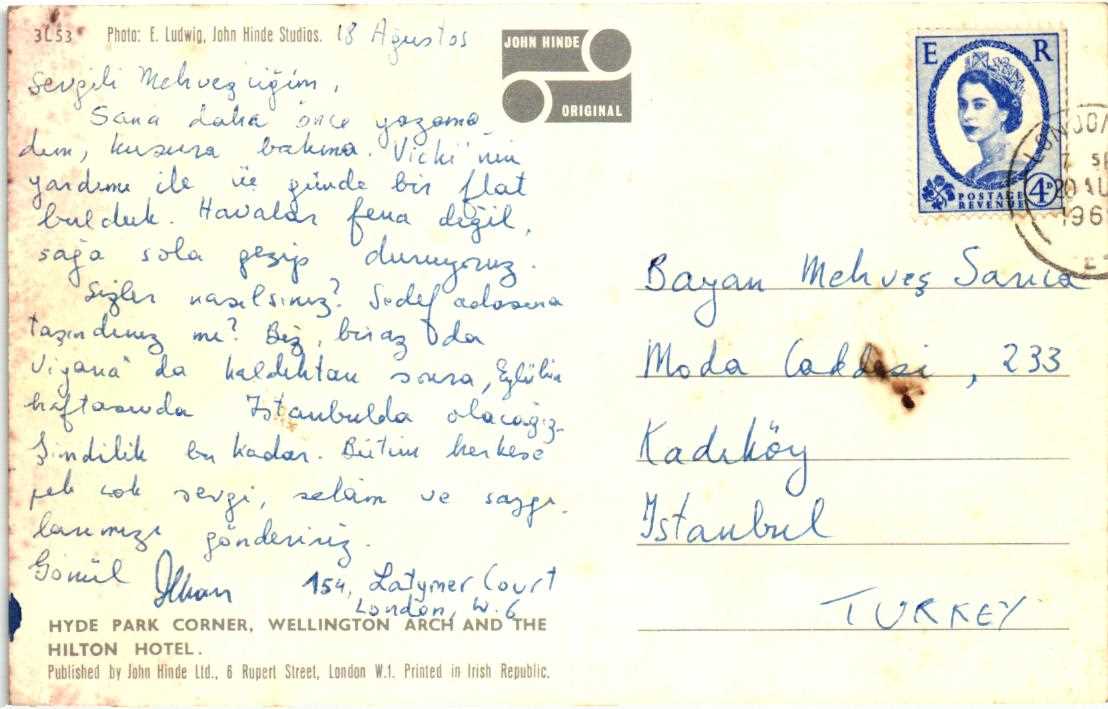 3L53 Photo: E. Ludwig, John Hinde Studios. 18 Ağustos
Sevgili Mehveşciğim,
Sana daha önce yazama
dım, kusura bakma. Vicki'nin
yardımı ile üç günde bir flat
bulduk. Havalar fena değil,
sağa sola gezip duruyoruz.
Sizler nasılsınız? Sedef adasına
taşındınız mı? Biz, biraz da
Viyana'da kaldıktan sonra, Eylülün
haftasında İstanbulda olacağız.
Şimdilik bu kadar. Bütün herkese
pek çok sevgi, selâm ve saygı-
larımızı göndeririz.
Gönül İlhan 154, Latymer Court
London, W.6
HYDE PARK CORNER, WELLINGTON ARCH AND THE
HILTON HOTEL.
Published by John Hinde Ltd., 6 Rupert Street, London W.1. Printed in Irish Republic.
JOHN HINDE
ORIGINAL
E R
POSTAGE
REVENUE
4D
LONDON
20 AU
196
E
Bayan Mehveş Sarıca
Moda Caddesi, 233
Kadıköy
İstanbul
TURKEY